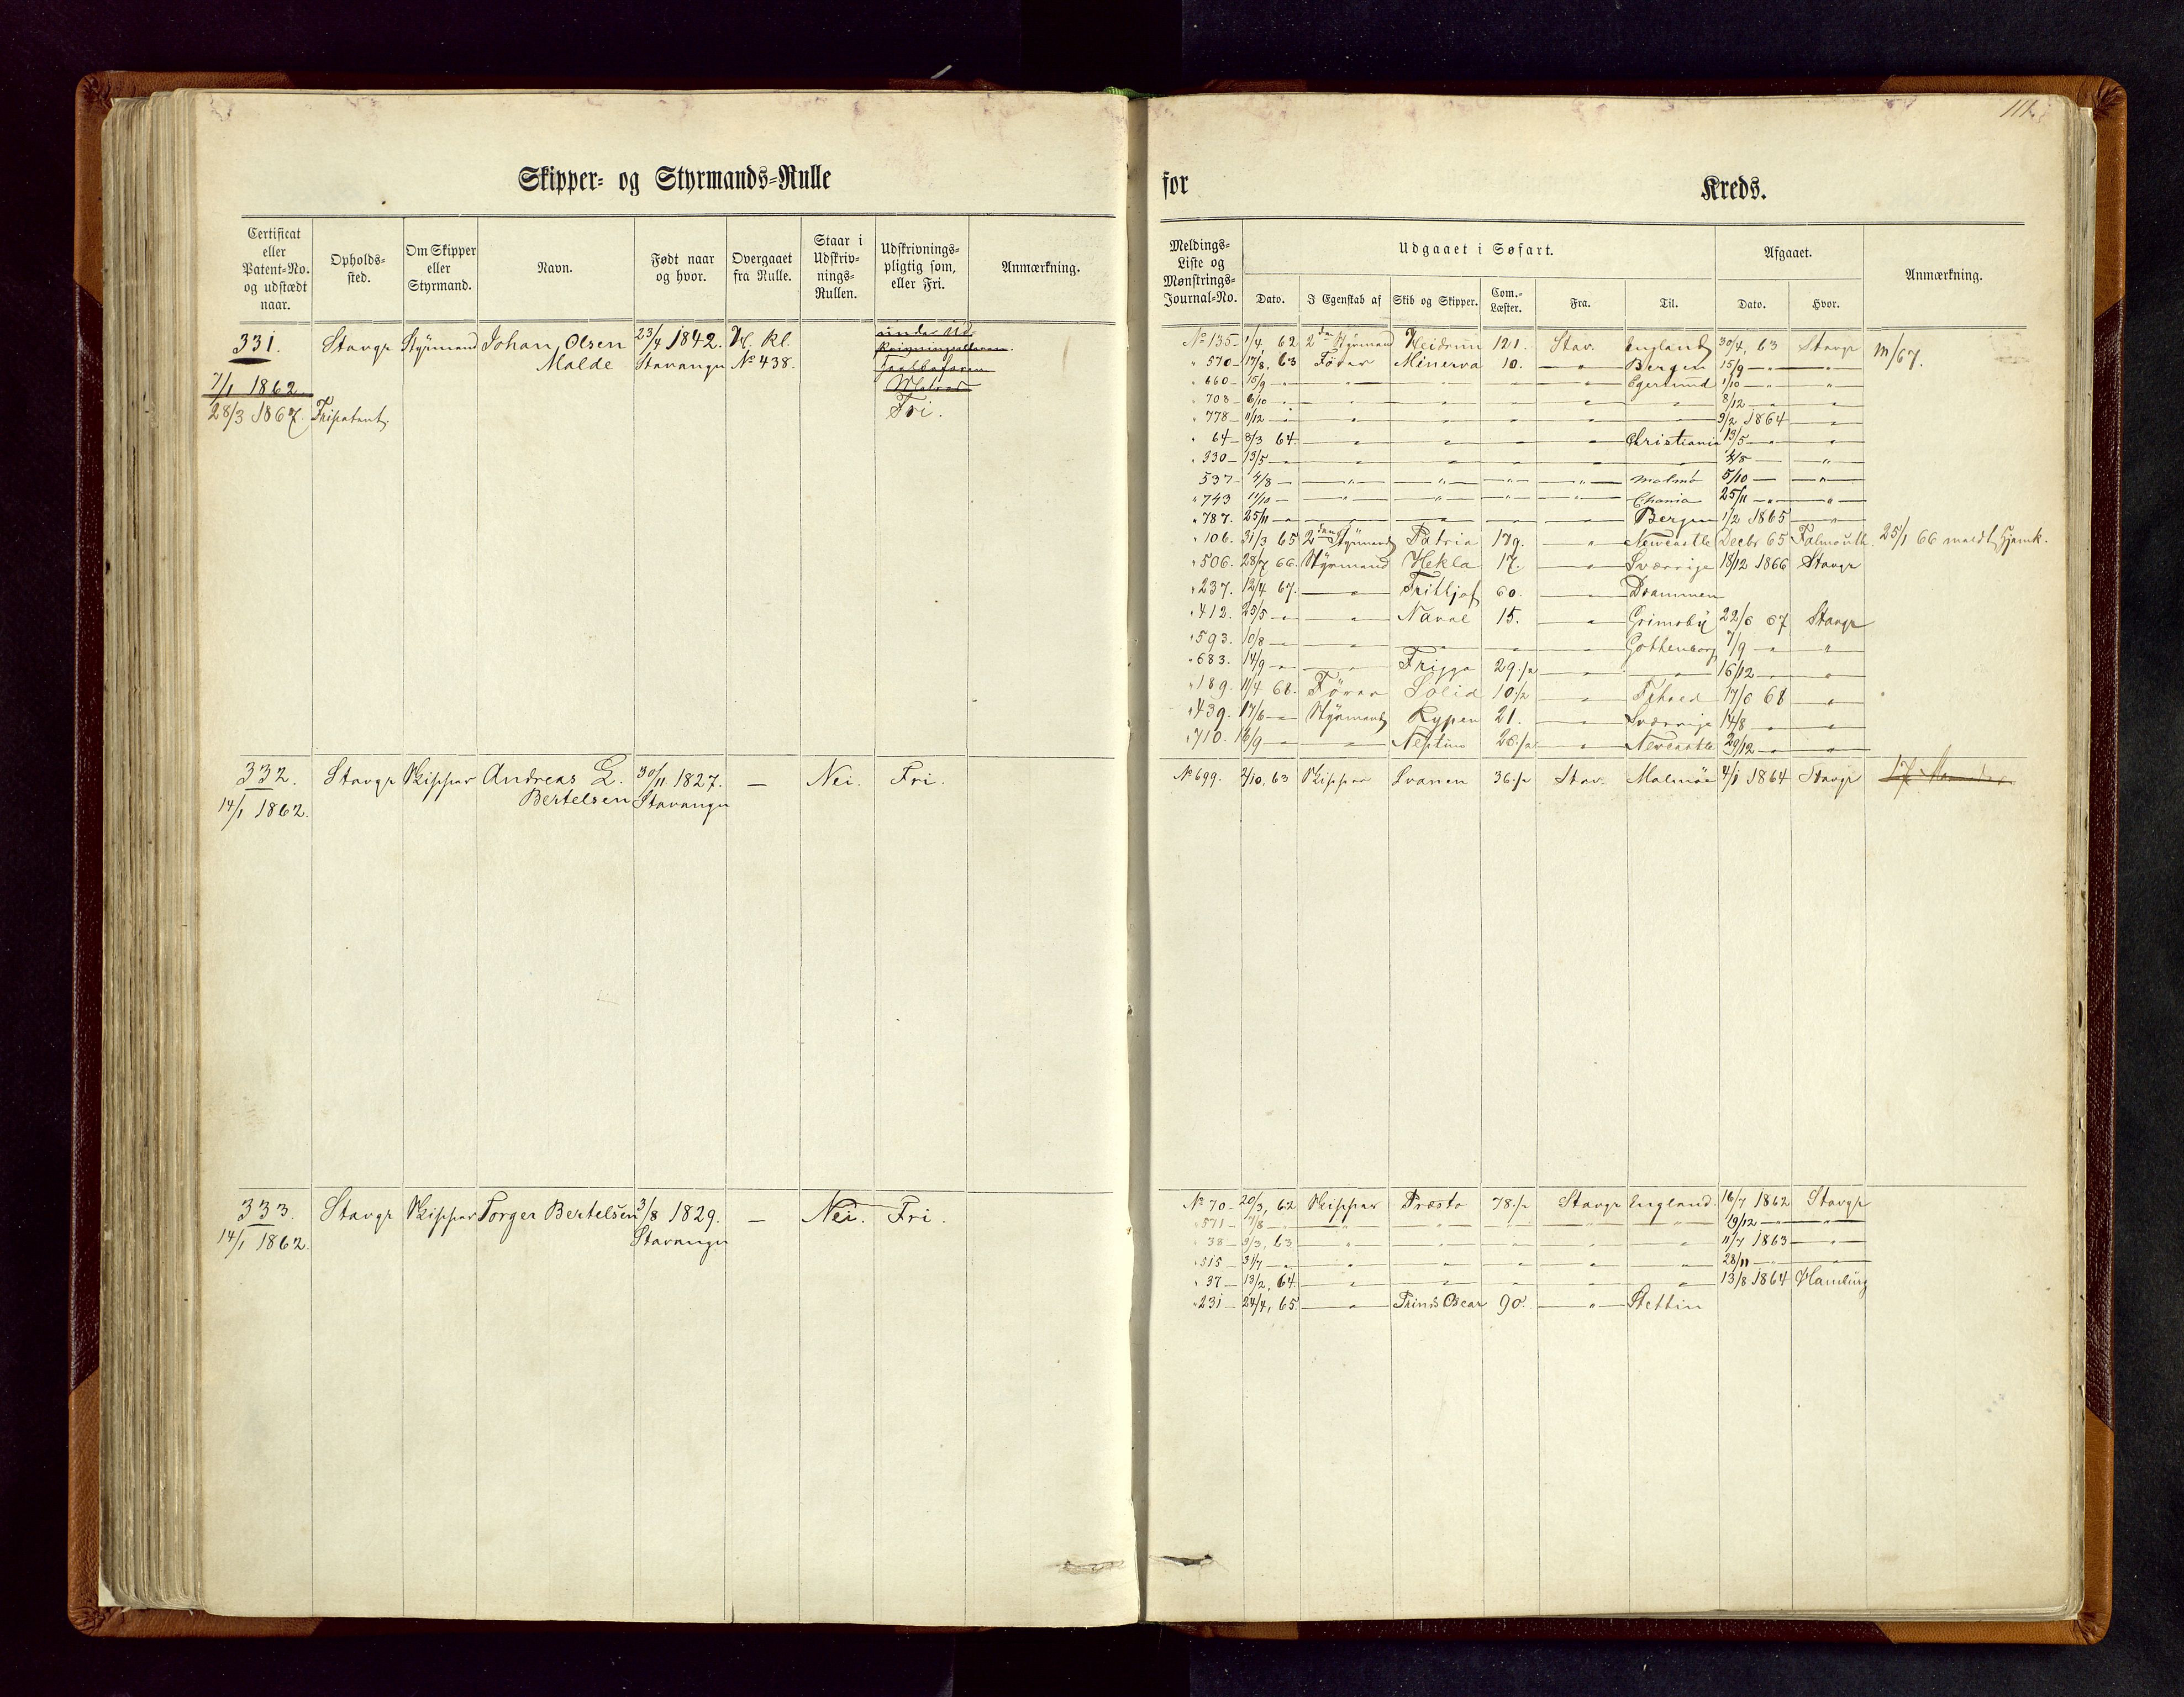 Skipper- og Styrmands-Rulle
Certificat eller Patent-No. og udstædt naar.
Opholds-sted.
Om Skipper eller Styrmand.
Navn.
Født naar og hvor.
Overgaaet fra Rulle.
Staar i Udskriv-nings-Rullen.
Udskrivnings-pligtig som, eller Fri.
Anmærkning.
331. Stavgr Styrmand Johan Olsen 23/4 1842. Hl. Kl.
Malde Stavanger No 438.
7/1 1862.
28/3 1867. Fripatent. Fri.
332. Stavgr Skipper Andreas L. 30/11 1827. — Nei. Fri.
Bertelsen Stavanger
14/1 1862.
333. Stavgr Skipper Torger Bertelsen 3/8 1829. — Nei. Fri.
14/1 1862. Stavanger
111.
for Kreds.
Meldings-Liste og Mønstrings-Journal-No.
Udgaaet i Søfart.
Afgaaet.
Anmærkning.
Dato.
I Egenskab af
Skib og Skipper.
Com.-Læster.
Fra.
Til.
Dato.
Hvor.
No 135 1/4 62 2den Styrmand Heidrun 121. Stav. England 30/4, 63 Stavgr m/67.
" 570 17/8, 63 Fører Minerva 10. — " — Bergen 15/9 — " —
" 660 15/9 — " — " — " — " — Egersund 1/10 — " — "
" 703 6/10 — " — " — " — " — " — 8/12 — " — "
" 778 11/12 — " — " — " — " — " — 9/2 1864 — "
" 64 8/3 64 — " — " — " — " — Christiania 13/5 — " — "
" 330 13/5 — " — " — " — " — " — 4/8 — "
537 4/8 — " — " — " — " — Malmö 5/10 — "
" 743 11/10 — " — " — " — " — Chania 25/11 — " — "
" 787. 25/11 — " — " — " — " — Bergen 1/2 1865 — "
" 106. 31/3 65 2den Styrmand Patria 179. — " — Newcastle Decbr 65 Falmouth. 25/1 66 meldt Hjemk.
" 506. 28/7 66. Styrmand Hekla 17. — " — Sverrige 18/12 1866 Stavgr
" 237. 12/4 67. — " — Frithjof 60. — " — Drammen
" 412. 25/5 — " — Naval 15. — " — Grimsby 22/6 67 Stavgr
" 593. 10/8 — " — " — " — " — Gothenborg 7/9 — " — "
" 683. 14/9 — " — Frigga 29 1/2 — " — " — 16/12 — " — "
" 189. 11/4 68. Fører Solid 10 1/2 — " — 17/6 68 — "
" 439. 17/6 — " Styrmand Rypen 21. — " — Sverrige 14/8 — " — "
" 710. 16/9 — " — " — Neptun — " — Newcastle 29/12 — " — "
No 699. 2/10, 63 Skipper Svanen 36 1/2 Stav. Malmöe 4/1 1864 Stavgr
No 70 20/3, 62 Skipper Præsto 78 1/2 Stavgr England 16/7 1862 Stavgr
" 571 7/8 — " — " — " — " — " 19/12 — " — "
" 38 9/3, 63 " — " — " — " — " 11/7 1863 — "
" 515 31/7 — " — " — " — " — " 28/11 — " — "
" 37 13/2, 64. " — " — " — " — " 13/8 1864 Hamburg
" 231 24/4, 65. — " — Prinds Oscar 90. — " — Stettin